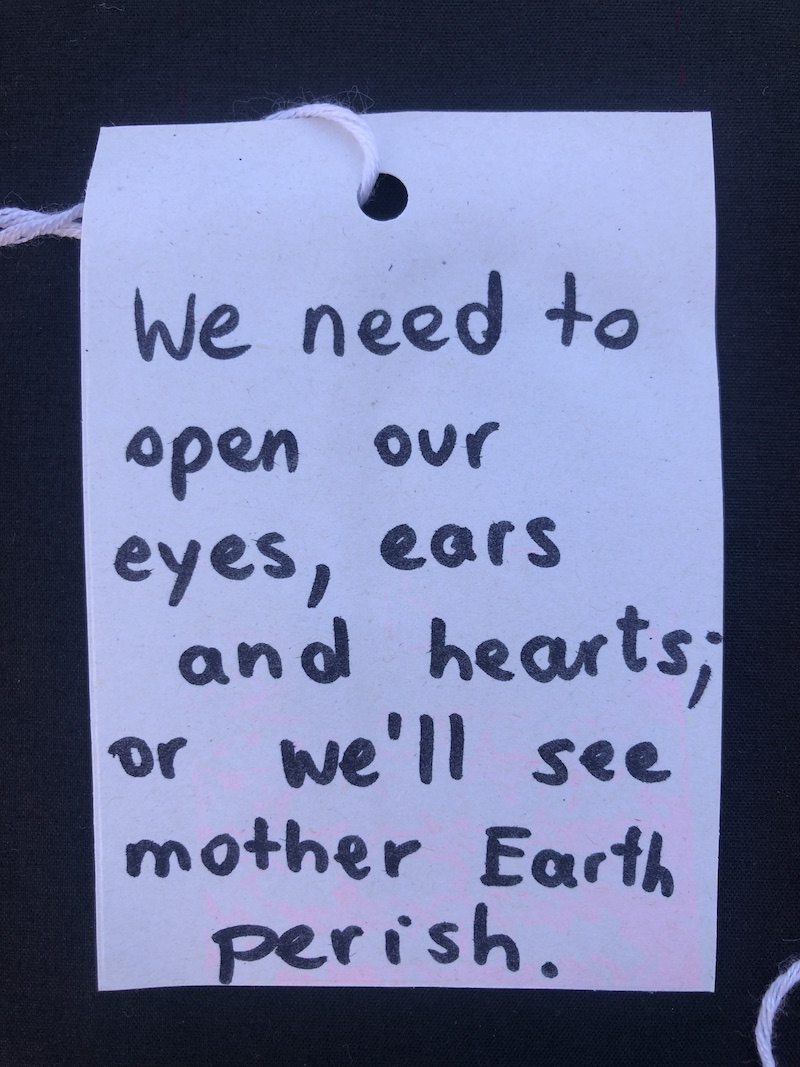 We need to
open our
eyes, ears
and hearts;
or we'll see
mother Earth
perish.